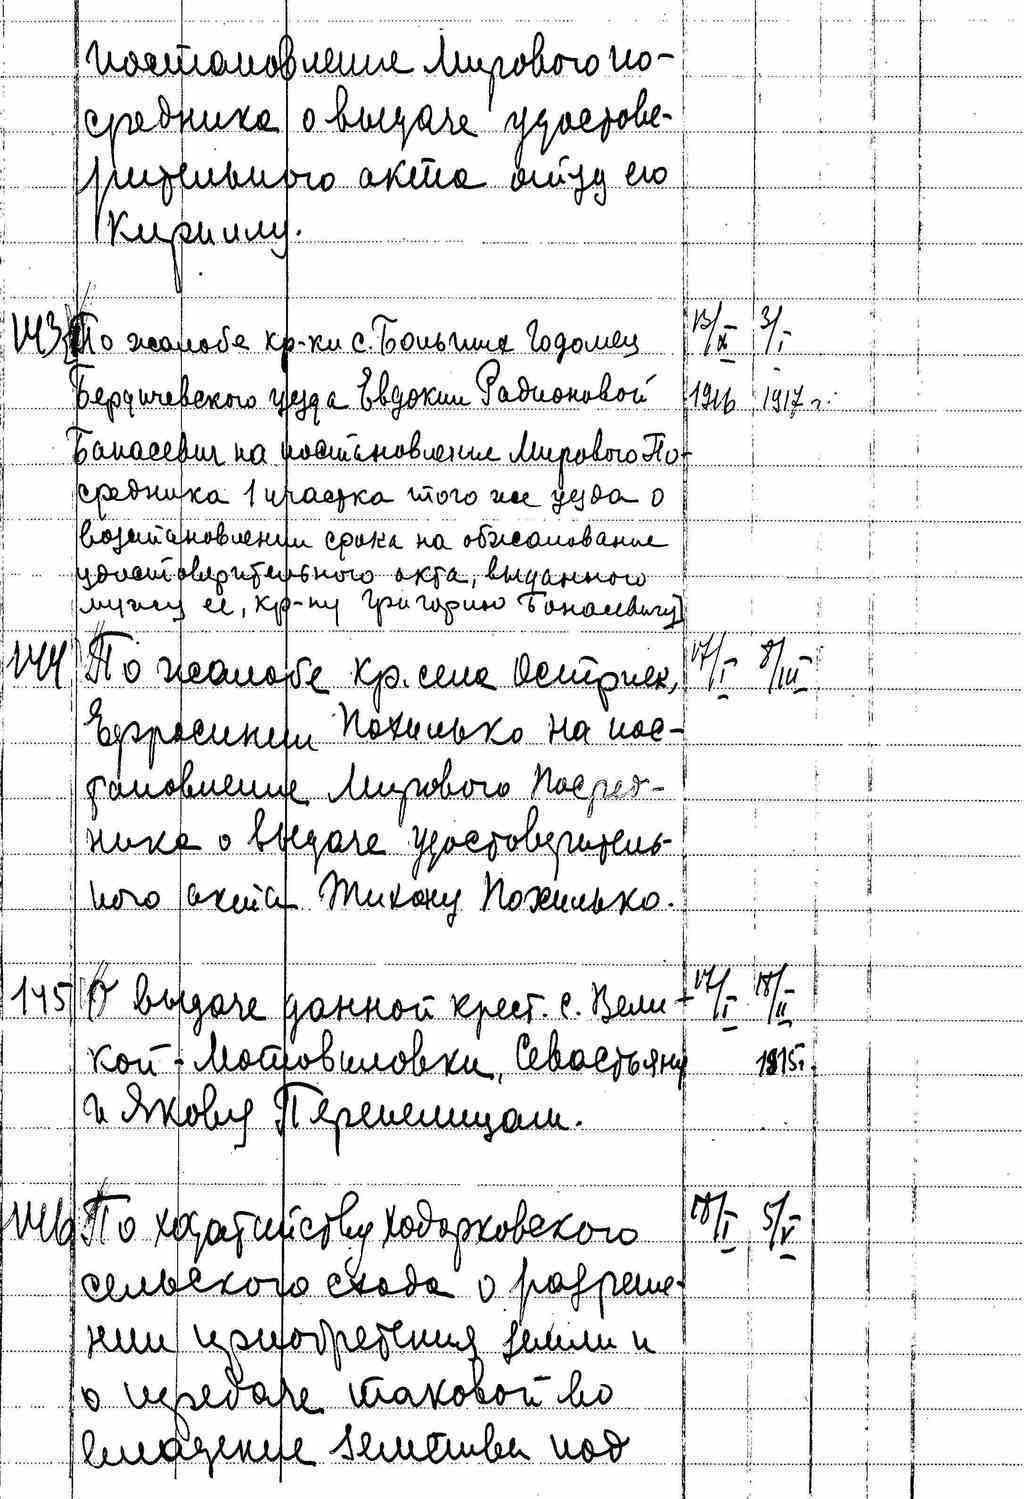 постановление Мирового по-
средника о выдаче удостове-
рительного акта отцу его
Кириллу.
143 По жалобе кр-ки с. Больших Годомец 13/X 3/I
Бердичевского уезда Евдокии Радионовой 1916 1917 г.
Банасевич на постановление Мирового По-
средника 1 участка того же уезда о
возстановлении срока на обжалование
удостоверительного акта, выданного
мужу ее, кр-ну Григорию Банасевичу]
144 По жалобе кр. села Острıек, 17/I 8/III
Ефросинии Похилько на пос-
тановление Мирового Посред-
ника о выдаче удостоверитель-
ного акта Тихону Похилько.
145 О выдаче данной крест. с. Вели- 17/I 18/II
кой-Мотовиловки, Севастьяну 1915г.
и Якову Перепелицам.
146 По ходатайству Ходорковского 18/I 5/V
сельского схода о разреше-
нии приобретения земли и
о передаче таковой во
владение земства под